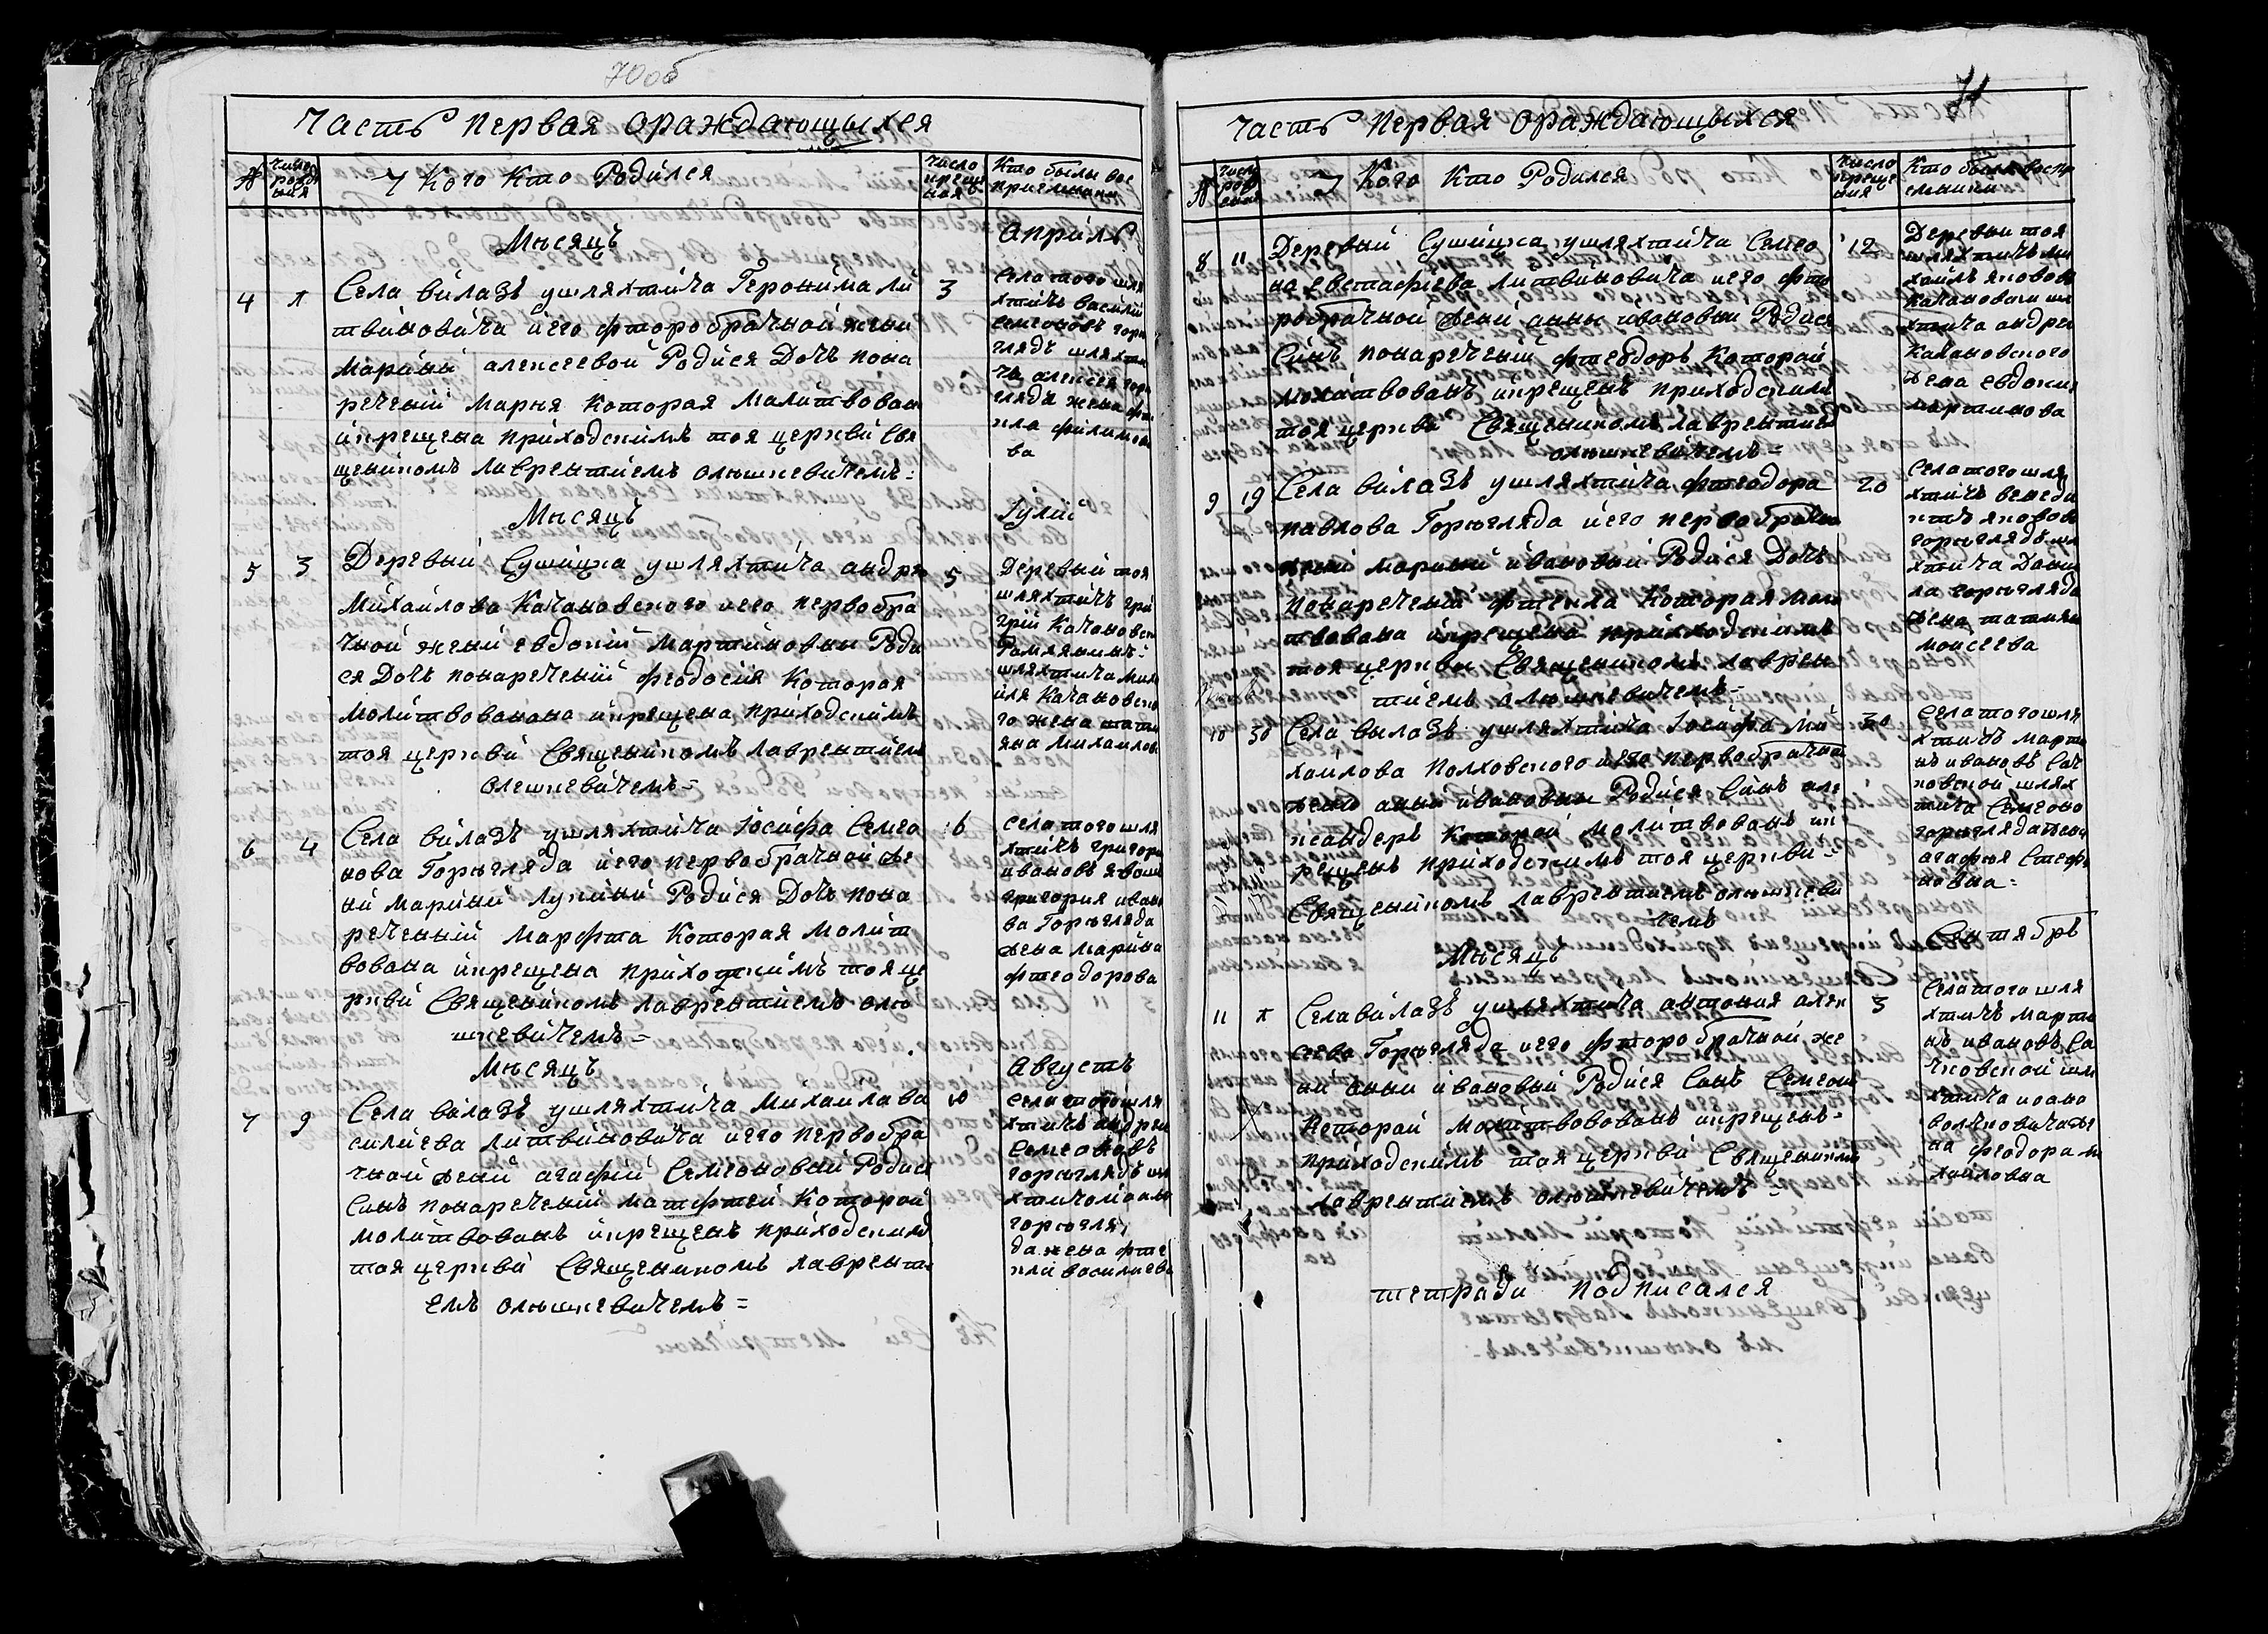 70об
Часть первая ораждающыхся
№
число рожде ния
У Кого Кто Родился
число креще ния
Кто были вос приемники
Мѣсяцъ Априль
4 1 Села вилазъ ушляхтича Геронима Ли 3
твиновича и его фторобрачной жены
Марыны алексеевой Родися Дочь пона
речений Марня Которая Малитвована
икрещена приходскимъ тоя церкви Свя
щеникомъ лаврентиемъ олюшкевичемъ:
села того шля
хтичъ василий
семеоновъ горе
глядъ шляхти
ча алексея горе
гляда жена фте
кла филимоно
ва
Мѣсяцъ Iулий
5 3 Деревьни Сушицка ушляхтича андрея 5
Михаилова Качановского и его первобра
чной жены евдокии Мартиновьи Роди
ся Дочь понаречений феодосия Которая
молитвованана икрещена приходскимъ
тоя церкви Священикомъ лаврентием
олешкевичемъ=
Деревьни тоя
шляхтичъ гри
грий Качановски
шляхтича Миха
ила Качановско
го жена татья
яна Михаилов
6 4 Села вилазъ ушляхтича Иосифа Семео 6
нова Горегляда и его первобрачной же
ни Марини Лукини Родися Дочь пона
реченний Марфта Которая Молит
вована икрещена приходскимъ тоя це
ркви Священикомъ лаврентиемъ олю
шкевичемъ=
село того шля
хтичъ григори
ивановъ
григория ивано
ва Горегляда
жена Марина
фтеодорова
Мѣсяцъ Августъ
7 9 Села вилазъ ушляхтича Михаила ва 10
силиева литвиновича и его первобра
чной жени агафий Семеоновьй Родися
Синъ понаречений матфтей Которой
молитвованъ икрещенъ приходским
тоя церкви Священикомъ лаврентие
емъ олюшкевичемъ=
села того шля
хтичъ андреи
Семеоновъ
гореглядъ шля
хтича
горегля
да жена фте
кла василиева
71
Часть Первая Ораждающыхся
№
число рож ения
У Кого Кто Родился
число креще ния
Кто были воспр емники
8 11 Деревьни Сушицка ушляхтича Семео 12
на евстафиева литвиновича и его фто
робрачной жени анны ивановьи Родися
Синъ понаречений фтеодоръ Которай
молитвованъ икрещенъ приходским
тоя церкви Священикомъ лаврентием
олюшкевичемъ=
Деревьни тоя
шляхтичъ Ми
хаилъ яковов
Качановски шл
яхтича андрея
Качановского
жена евдокия
мартинова
9 19 Села вилазъ ушляхтича фтеодора 20
павлова Горегляда и его первобрачно
жени Марини ивановьй Родися Дочь
понаречений фтекла Которая моли
твована икрещена приходскимъ
тоя церкви Священикомъ лаврен
тиемъ олюшкевичемъ=
Села того шля
хтичъ венеди
ктъ яковов
гореглядъ шл
яхтича Дани
ла горегляда
жена татияна
моисеева
10 30 Села вылазъ ушляхтича Iосифа Ми 30
хаилова Полховского и его первобрачной
жены аньни ивановьи Родися Синъ але
ксандеръ Которой молитвованъ ик
рещенъ приходскимъ тоя церкви=
Священикомъ лаврентиемъ олюшкеви
чемъ
Села того шля
хтичъ Марти
нъ ивановъ Сач
ковской шлях
тича Семеона
горегляда жена
агафия Стефа
новна=
Мѣсяцъ Сентябрь
11 1 Села вилазъ ушляхтича антония алек 3
сиева Горегляда и его фторобрачной же
ни анни ивановьй Родися Синъ Семеон
Которай молитвованъ икрещенъ=
приходскимъ тоя церкви Священикомъ
лаврентиемъ олюшкевичемъ=
Села того шля
хтичъ Марти
нъ ивановъ Са
чковской шля
хтича ивана
волчковича же
на феодора ми
хайловна
тетради подписался